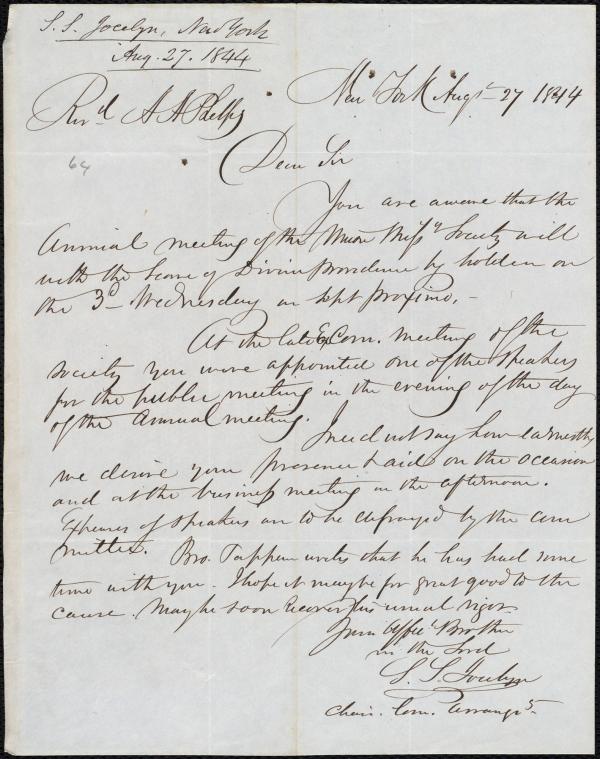 S. S. Jocelyn, New York
Aug. 27. 1844
New York Augt 27 1844
Revd A A Phelps
64
Dear Sir
You are aware that the
Annual meeting of the Union Missy Society will
with the leave of Divine providence be holden on
the 3d Wednesday in Sept proximo. -
At the late Ex Com. meeting of the
Society you were appointed one of the speakers
for the public meeting in the evening of the day
of the annual meeting.
I need not say how earnestly
we desire your presence & aid on the occasion
and at the business meeting in the afternoon.
Expenses of Speakers are to be defrayed by the com
mittee. Bro. Tappan writes that he has had some
time with you. I hope it may be for great good to the
cause. May he soon recover his usual vigor.
Your affece Brother
in the Lord
S. S. Jocelyn
Chair. Com. Arrangts